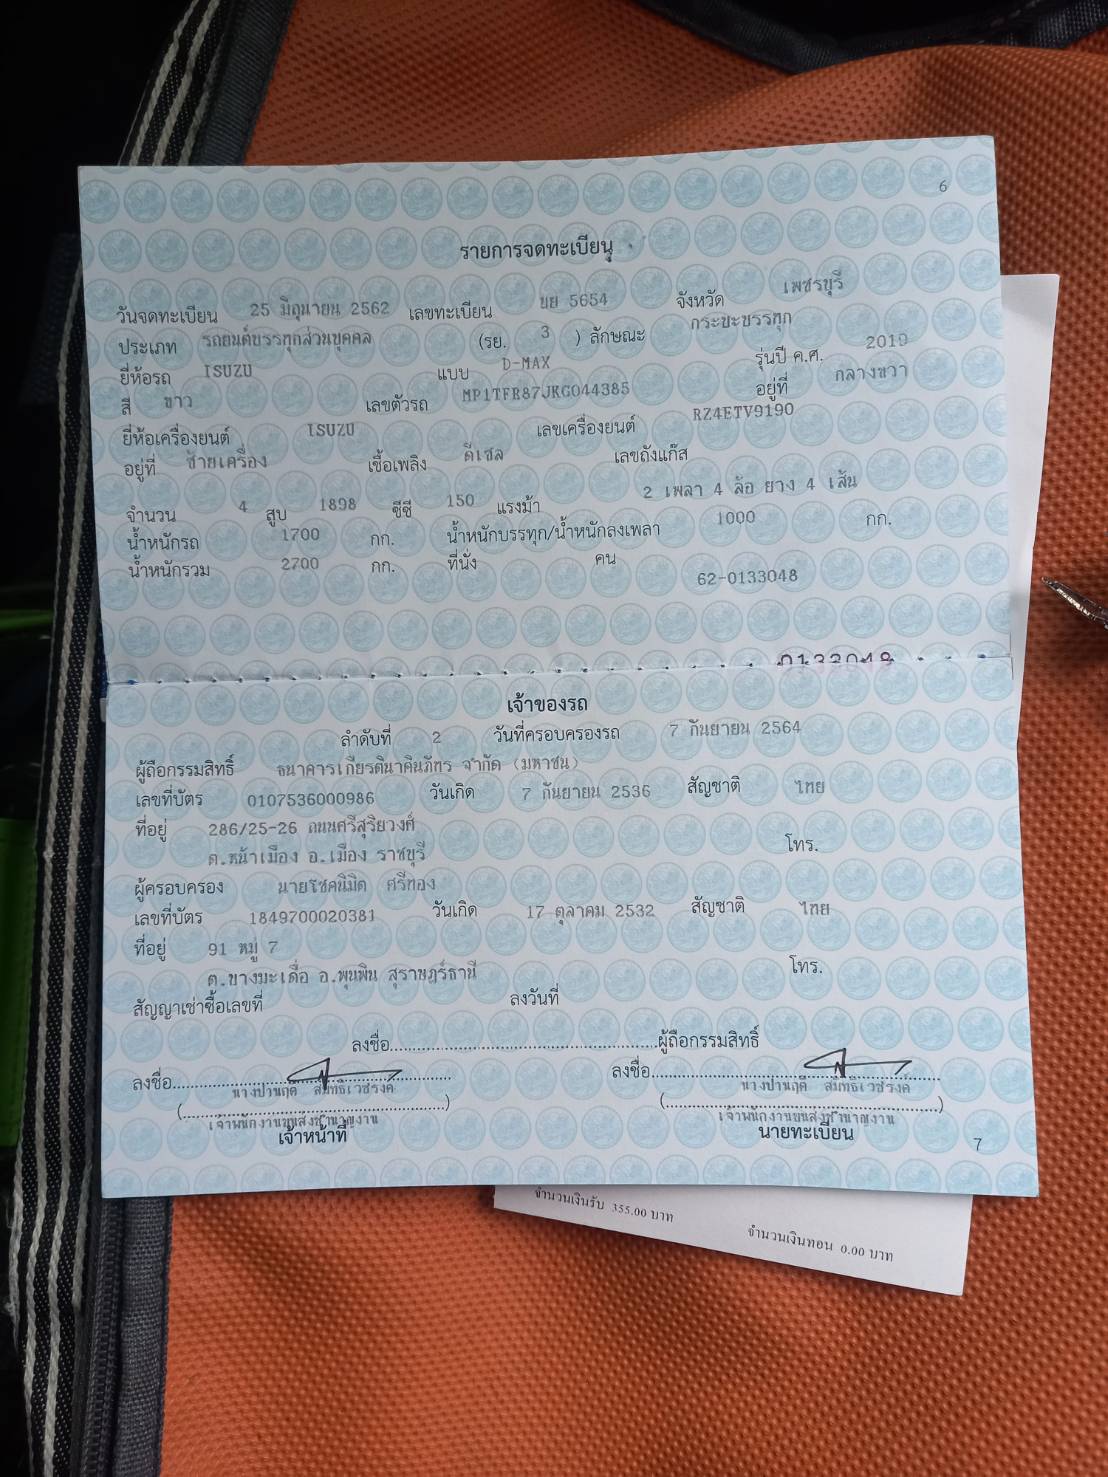 6
รายการจดทะเบียน
วันจดทะเบียน 25 มิถุนายน 2562 เลขทะเบียน บย 5654 จังหวัด เพชรบุรี
ประเภท รถยนต์บรรทุกส่วนบุคคล (รย. 3 ) ลักษณะ กระบะบรรทุก
ยี่ห้อรถ ISUZU แบบ D-MAX รุ่นปี ค.ศ. 2019
สี ขาว เลขตัวรถ MP1TFR87JKG044385 อยู่ที่ กลางขวา
ยี่ห้อเครื่องยนต์ ISUZU เลขเครื่องยนต์ RZ4ETV9190
อยู่ที่ ซ้ายเครื่อง เชื้อเพลิง ดีเซล เลขถังแก๊ส
จำนวน 4 สูบ 1898 ซีซี 150 แรงม้า 2 เพลา 4 ล้อ ยาง 4 เส้น
น้ำหนักรถ 1700 กก. น้ำหนักบรรทุก/น้ำหนักลงเพลา 1000 กก.
น้ำหนักรวม 2700 กก. ที่นั่ง คน
62-0133048
0133048
เจ้าของรถ
ลำดับที่ 2 วันที่ครอบครองรถ 7 กันยายน 2564
ผู้ถือกรรมสิทธิ์ ธนาคารเกียรตินาคินภัทร จำกัด (มหาชน)
เลขที่บัตร 0107536000986 วันเกิด 7 กันยายน 2536 สัญชาติ ไทย
ที่อยู่ 286/25-26 ถนนศรีสุริยวงศ์
ต.หน้าเมือง อ.เมือง ราชบุรี โทร.
ผู้ครอบครอง นายโชคนิมิต ศรีทอง
เลขที่บัตร 1849700020381 วันเกิด 17 ตุลาคม 2532 สัญชาติ ไทย
ที่อยู่ 91 หมู่ 7
ต.บางมะเดื่อ อ.พุนพิน สุราษฎร์ธานี โทร.
สัญญาเช่าซื้อเลขที่ ลงวันที่
ลงชื่อ ผู้ถือกรรมสิทธิ์
ลงชื่อ ลงชื่อ
เจ้าพนักงานขนส่งชำนาญงาน เจ้าพนักงานขนส่งชำนาญงาน
เจ้าหน้าที่ นายทะเบียน
7
จำนวนเงินรับ 355.00 บาท
จำนวนเงินทอน 0.00 บาท